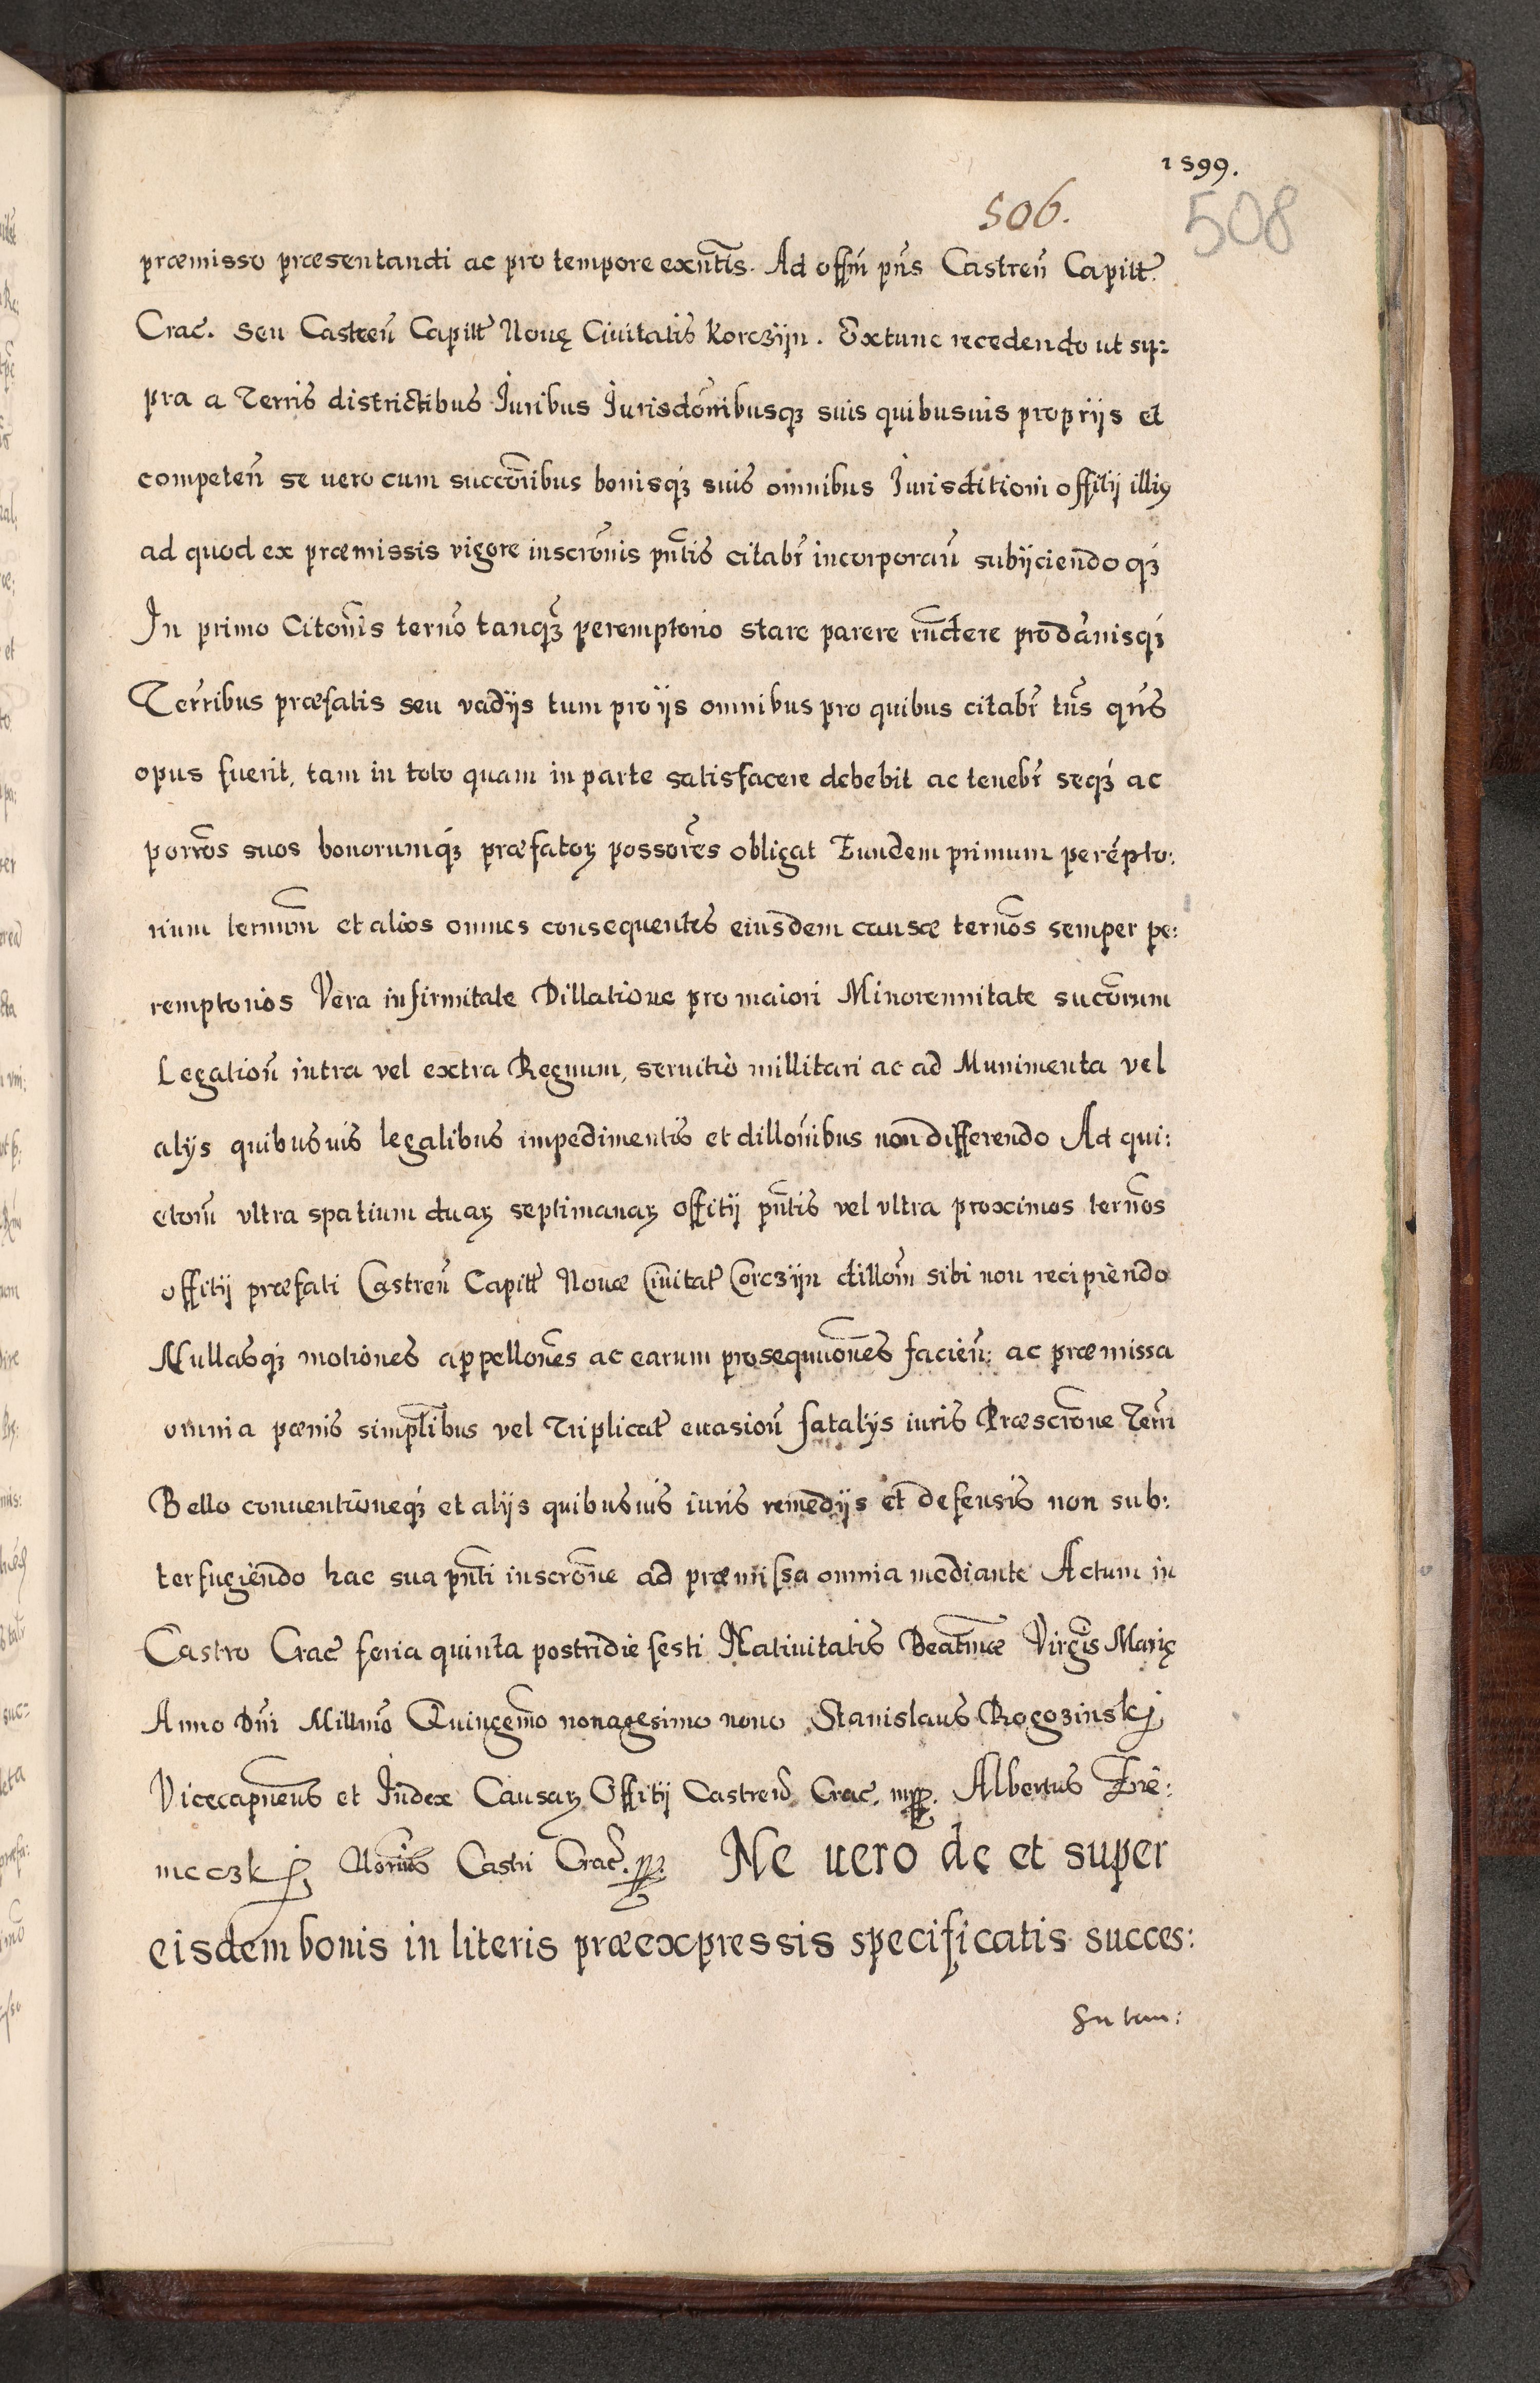 1599.
506.
508
præmisso præsentandi ac pro tempore exn̄tis. Ad offm̄ pn̄s Castren̄ Capitt̄
Crac̄. Seu Castren̄ Capitt̄ Nouę Ciuitatis Korczijn. Extunc recedendo ut su:
pra a Terris districtibus Iuribus Iurisdōnibusq₃ suis quibusuis proprijs et
competen̄ se uero cum succōribus bonisq₃ suis omnibus Iurisditioni offitij illiꝰ
ad quod ex præmissis vigore inscrōnis pn̄tis citabr̄ incorporan̄ subijciendoq₃
In primo Citōnis termō tanq₃ peremptorio stare parere rn̄dere pro dam̄isq₃
Terr̄ibus præfatis seu vadijs tum pro ijs omnibus pro quibus citabr̄ tn̄s qn̄s
opus fuerit, tam in toto quam in parte satisfacere debebit ac tenebr̄ seq₃ ac
porr̄os suos bonorumq₃ præfatoꝝ possor̄es obligat Eundem primum perēpto:
rium termnm̄ et alios omnes consequentes eiusdem causæ termōs semper pe:
remptorios Vera infirmitate Dillatione pro maiori Minorennitate sucōrum
Legation̄ intra vel extra Regnum, seruitio millitari ac ad Munimenta vel
alijs quibusuis legalibus impedimentis et dillōnibus non differendo Ad qui:
etom̄ vltra spatium duaꝝ septimanaꝝ offitij pn̄tis vel vltra proximos termōs
offitij præfati Castren̄ Capitt̄ Nouæ Ciuitat̄ Corczijn dillōm sibi non recipiendo
Nullasq₃ motiones appellōnes ac earum prosequutiōnes facien̄: ac præmissa
omnia pænis simplībus vel Triplicat̄ euasion̄ fatalijs iuris Præscrōne Terr̄
Bello conuentioneq₃ et alijs quibusuis iuris remedijs et defensis non sub:
terfugiendo hac sua pn̄ti inscrōne ad præmissa omnia mediante Actum in
Castro Crac̄ feria quinta postridie festi Natiuitatis Beatmǣ Virgīs Marię
Anno Dn̄i Millmō Quingemō nonagesimo nono Stanislaus Rogozinskj
Vicecapneus̄ et Iudex Causaꝝ Offitij Castren̄ Crac̄. mpp. Albertus Frē:
meczkj Norius̄ Castri Crac̄. pp. Ne uero de et super
eisdem bonis in literis præexpressis specificatis succes: